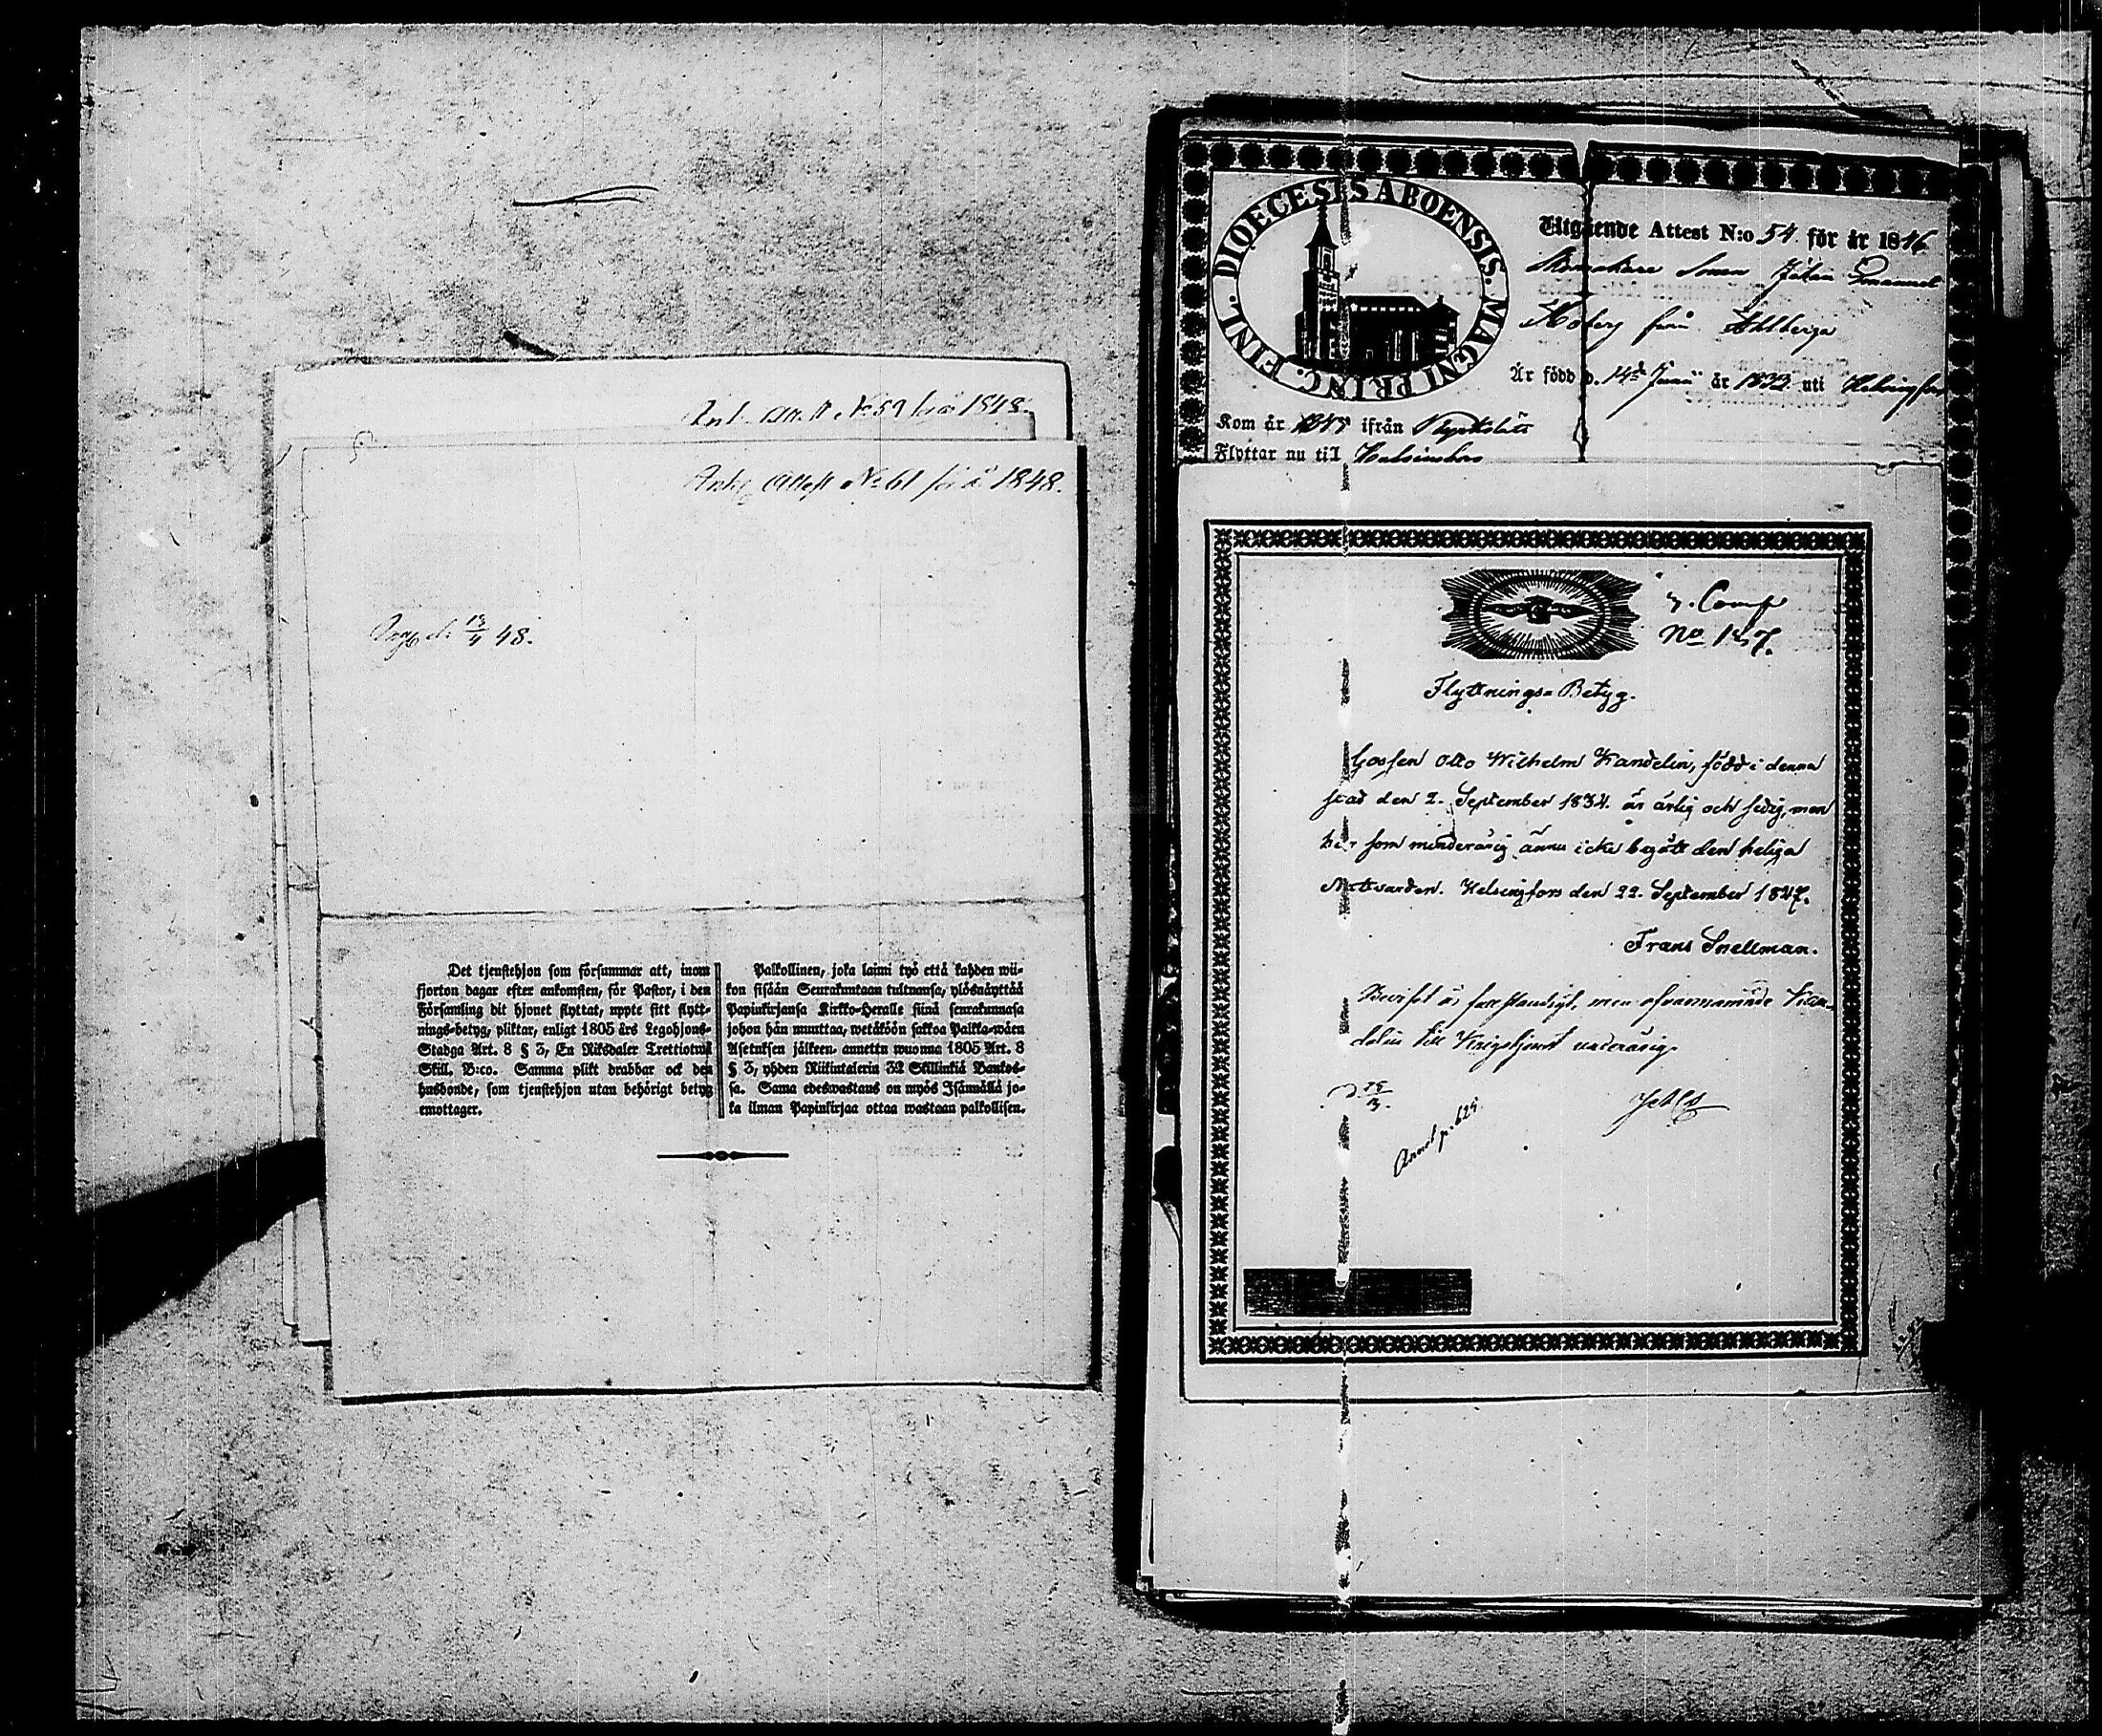 Ank. Att. N:o 59 för år 1848.
Ank. Attest N:o 61 för år 1848.
13/4 48.
Det tjenstehjon som försummar att, inom
fjorton dagar efter ankomsten, för Pastor, i den
Församling dit hjonet flyttat, uppte sitt flytt-
nings-betyg, pliktar, enligt 1805 års Legohjons-
Stadga Art. 8 § 3, En Riksdaler Trettiotwå
Skill. B:co. Samma plikt drabbar ock den
husbonde, som tjenstehjon utan behörigt betyg
emottager.
Palkollinen, joka laimi lyö että kahden wii-
kon sisään Seurakuntaan tultuansa, ylösnäyttää
Papinkirjansa Kirkko-Heralle siinä seurakunnasa
johon hän muuttaa, wetäköön sakkoa Palkka-wäen
Asetuksen jälkeen annettu wuonna 1805 Art. 8
§ 3, yhden Riikintalerin 32 Skillinkiä Bankos-
sa. Sama edeswastaus on myös Isännällä jo-
ka ilman Papinkirjaa ottaa wastaan palkollisen.
DIOECESIS ABOENSIS. MAGNI PRINC. FINL.
Utgående Attest N:o 54 för år 1846
Sonen Johan Emanuel
från
Är född d. 14de år 1832 uti Helsingfors
Kom år ifrån Kyrkslätt
Flyttar nu till Helsingfors
7. Comp
No 147.
Flyttnings-Betyg.
Gossen Otto Wilhelm Kandelin, född i denna
stad den 2. September 1834. är ärlig och sedig, men
har som minderårig ännu icke begått den heliga
Nattvarden. Helsingfors den 22. September 1847.
Frans Snellman.
Beviset är fullständigt, men ofvannämnde Kan-
delin till Krigstjenst underårig.
d. 15/3.
Annot p. 625